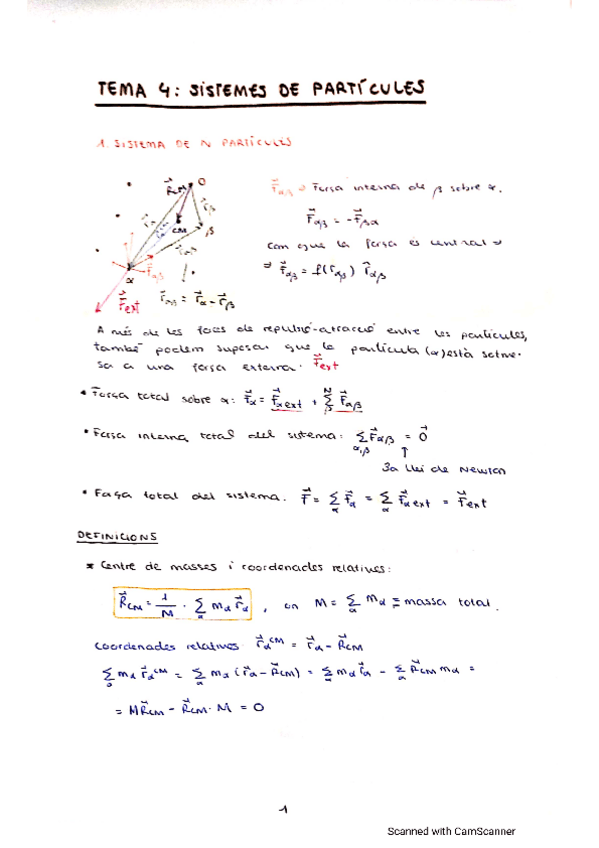 TEMA 4: SISTEMES DE PARTÍCULES
1. SISTEMA DE N PARTÍCULES
R⃗CM O
F⃗αβ ≡ Força interna de β sobre α.
F⃗αβ = -F⃗βα
CM β
com que la força és central ⇒
⇒ F⃗αβ = f(rαβ) r̂αβ
α F⃗αβ
F⃗ext r⃗αβ = r⃗α - r⃗β
A més de les forces de repulsió-atracció entre les partícules,
també podem suposar que la partícula (α) està sotme-
sa a una força externa. F⃗ext
• Força total sobre α: F⃗α = F⃗α ext + Σβ^N F⃗αβ
• Força interna total del sistema: Σα,β F⃗αβ = 0⃗
↑
3a llei de Newton
• Força total del sistema. F⃗ = Σα F⃗α = Σα F⃗α ext = F⃗ext
DEFINICIONS
* Centre de masses i coordenades relatives:
R⃗CM = 1/M · Σα mα r⃗α , on M = Σα mα ≡ massa total.
Coordenades relatives r⃗α^CM = r⃗α - R⃗CM
Σα mα r⃗α^CM = Σα mα (r⃗α - R⃗CM) = Σα mα r⃗α - Σα R⃗CM mα =
= M R⃗CM - R⃗CM · M = 0
1
Scanned with CamScanner